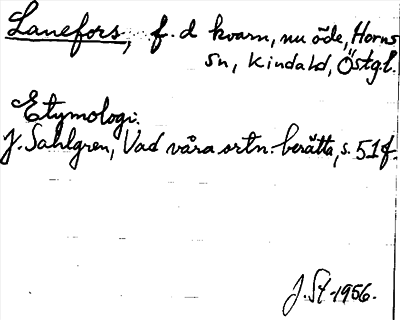 Lanefors, f. d kvarn, nu öde, Horns
sn, Kinda hd, Östgl.
Etymologi.
J. Sahlgren, Vad våra ortn. berätta, s. 51 f.
J. St 1956.